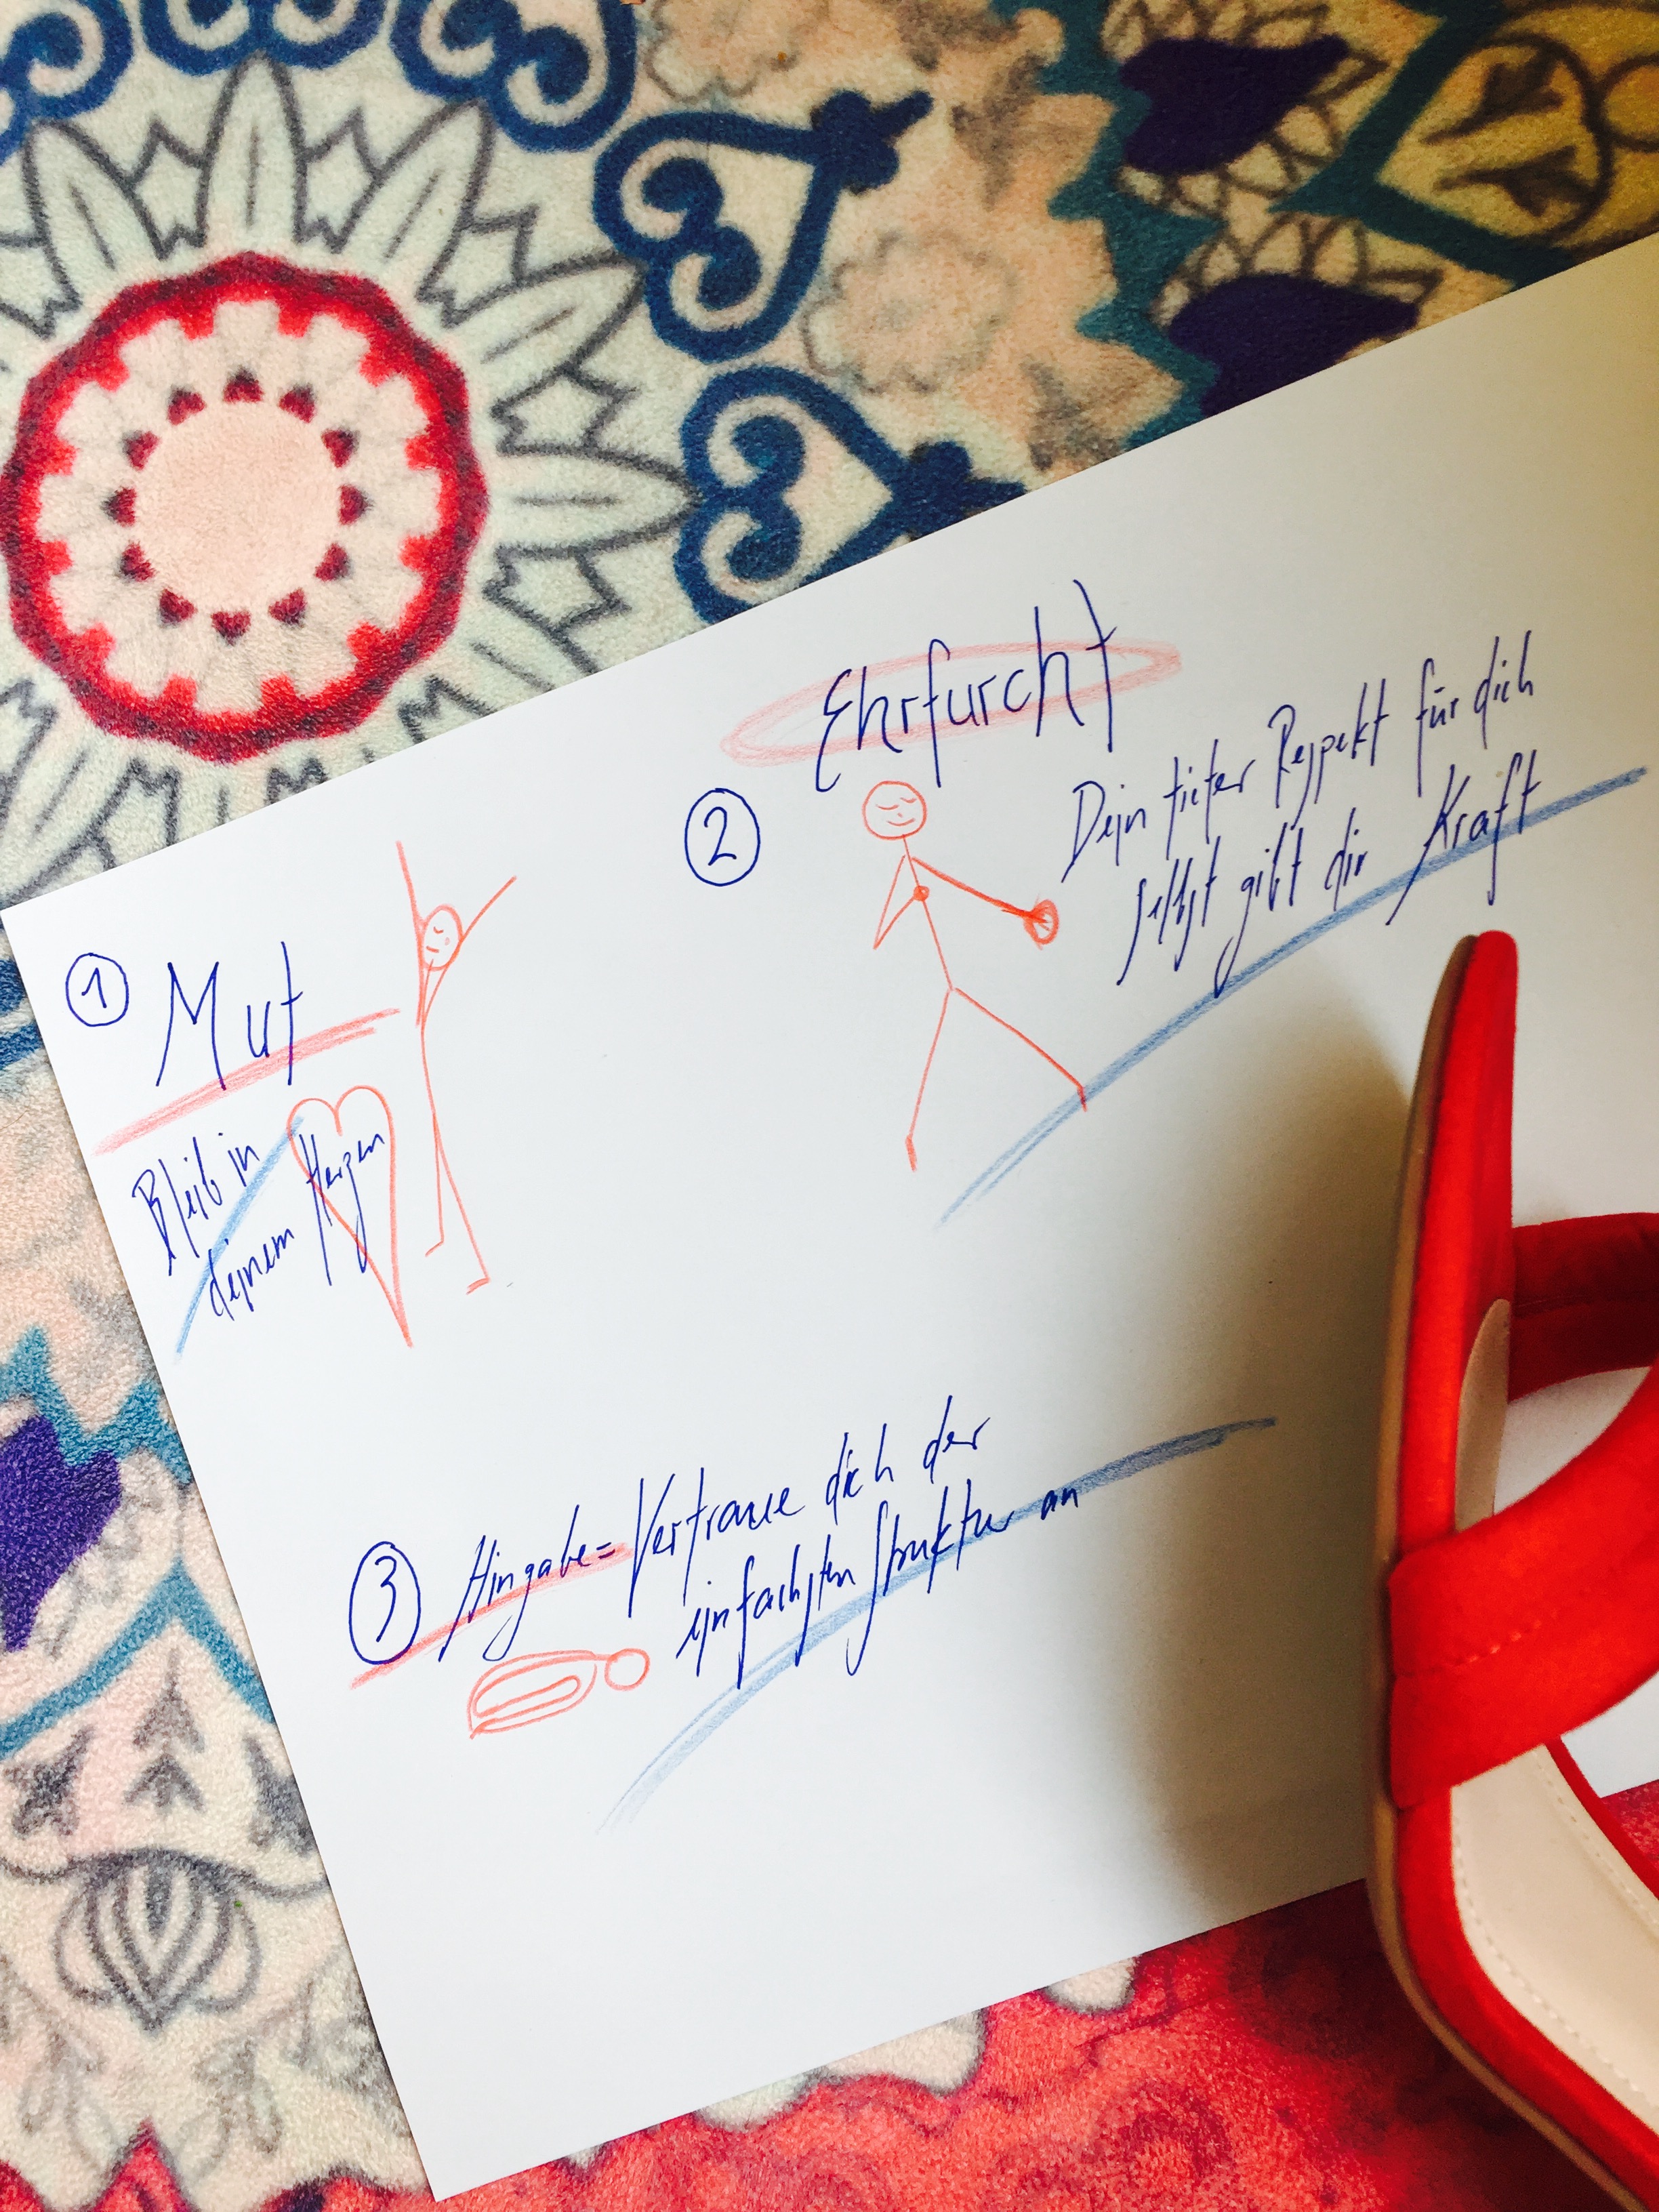 ① Mut
Bleib in
deinem Herzen
② Ehrfurcht
Dein tiefer Respekt für dich
selbst gibt dir Kraft
③ Hingabe = Vertraue dich der
einfachsten Struktur an